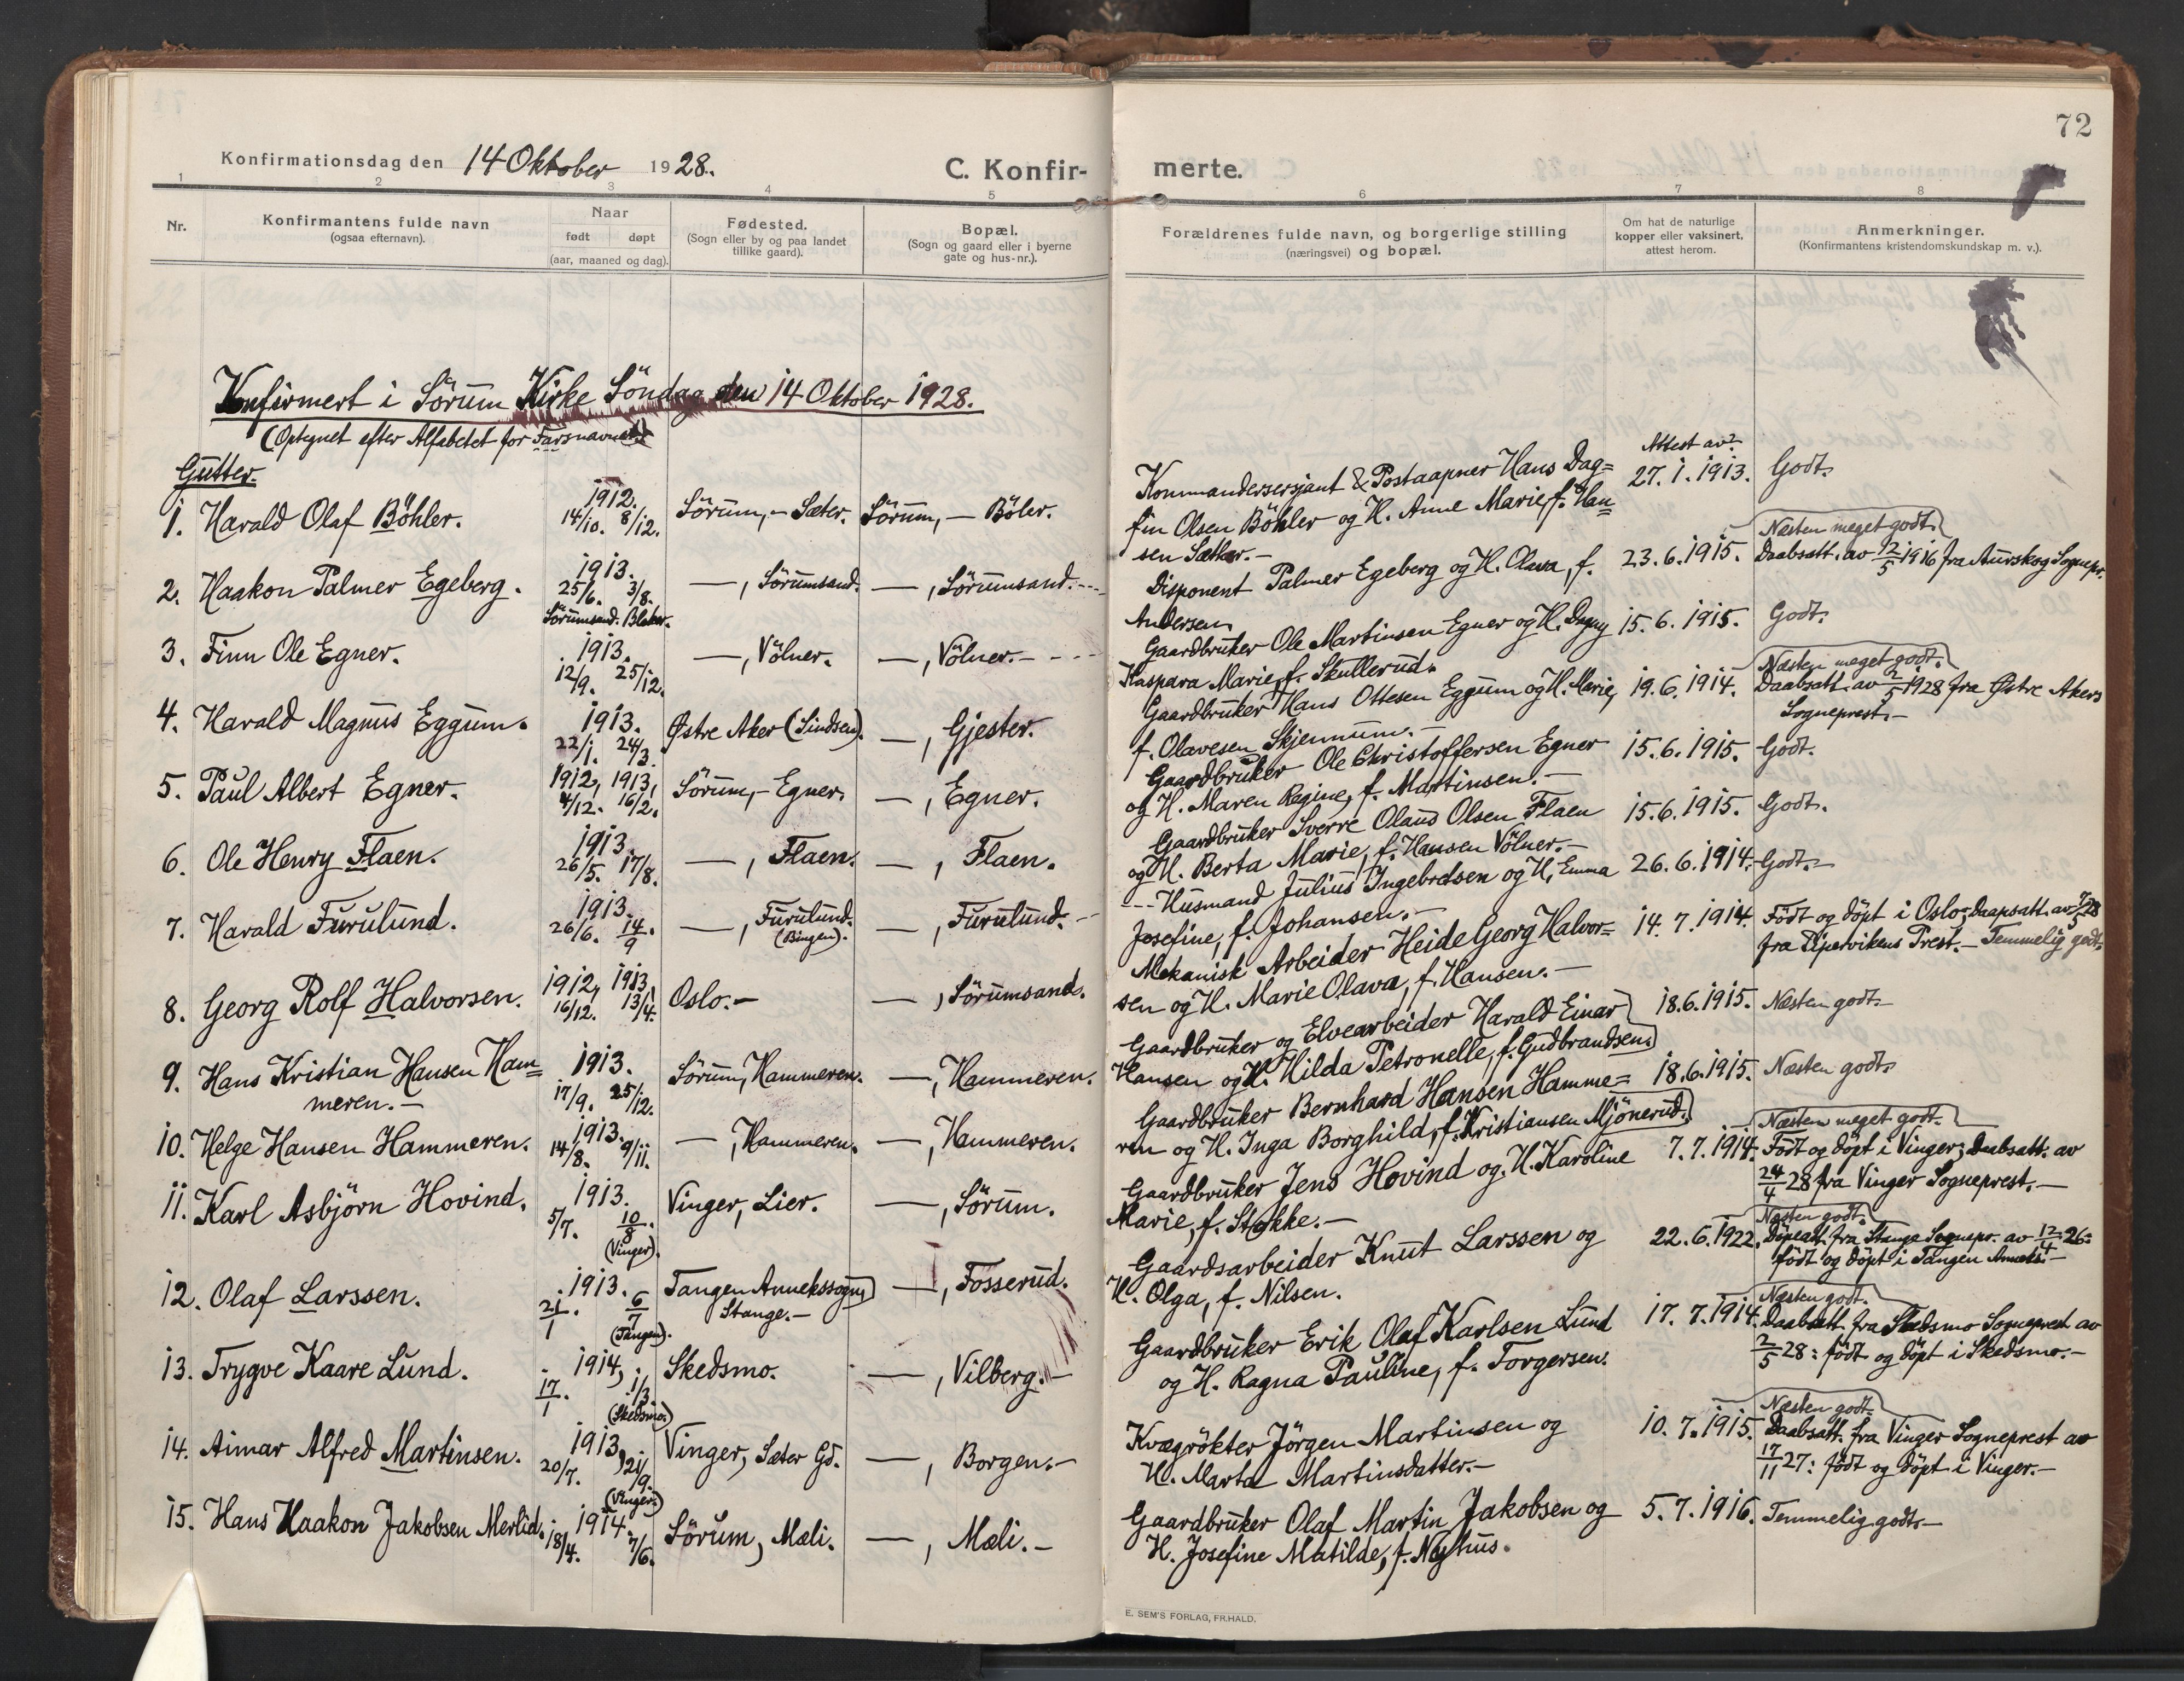 72
Konfirmationsdag den 14 Oktober 1928.
C. Konfir-
merte.
1 2 3 4 5 6 7 8
Nr.
Konfirmantens fulde navn
(ogsaa efternavn).
Naar
født døpt
(aar, maaned og dag).
Fødested.
(Sogn eller by og paa landet
tillike gaard).
Bopæl.
(Sogn og gaard eller i byerne
gate og hus-nr.).
Forældrenes fulde navn, og borgerlige stilling
(næringsvei) og bopæl.
Om hat de naturlige
kopper eller vaksinert,
attest herom.
Anmerkninger.
(Konfirmantens kristendomskundskap m. v.).
Konfirmert i Sörum Kirke Söndag den 14 Oktober 1928.
(Optegnet efter Alfabetet for Farsnavnet)
Gutter.
Attest av:
1. Harald Olaf Böhler. 1912. 14/10. 8/12. Sörum, - Sæter. Sörum, - Böler.
Kommandersersjant & Postaapner Hans Dag=
fin Olsen Böhler og H. Anne Marie, f. Han=
sen Sæther. -
27. 1. 1913. Godt.
2. Haakon Palmer Egeberg. 1913. 25/6. 3/8. —, Sörumsand. —, Sörumsand. ---
Sörumsand. Blaker.
Disponent Palmer Egeberg og H. Olava, f.
Andersen.
23. 6. 1915. Næsten meget godt.
Daabsatt. av 12/5 1916 fra Aurskog Sognepr.
3. Finn Ole Egner. 1913. 12/9. 25/12. —, Völner. —, Völner. - - -
Gaardbruker Ole Martinsen Egner og H. Dagny
Kaspara Marie, f. Skullerud.
15. 6. 1915. Godt.
4. Harald Magnus Eggum. 1913. 22/1. 24/3. Østre Aker (Lindsen). —, Gjester.
Gaardbruker Hans Ottesen Eggum og H. Marie,
f. Olavesen Skjennum. -
19. 6. 1914. Næsten meget godt.
Daabsatt. av 2/5 1928 fra Østre Akers
Sogneprest. -
5. Paul Albert Egner. 1912, 1913, 4/12. 16/2. Sörum, - Egner. —, Egner.
Gaardbruker Ole Christoffersen Egner
og H. Maren Regine, f. Martinsen. -
15. 6. 1915. Godt.
6. Ole Henry Flaen. 1913. 26/5. 17/8. —, Flaen. —, Flaen.
Gaardbruker Sverre Olaus Olsen Flaen
og H. Berta Marie, f. Hansen Völner. -
15. 6. 1915. Godt.
7. Harald Furulund. 1913. 26/6. 14/9. —, Furulund. (Bingen). —, Furulund. -
--- Husmand Julius Ingebretsen og H. Emma
Josefine, f. Johansen. -
26. 6. 1914. Godt. -
8. Georg Rolf Halvorsen. 1912, 1913, 16/12. 13/4. Oslo. - —, Sörumsand.
Mekanisk Arbeider Heide Georg Halvor=
sen og H. Marie Olava, f. Hansen. -
14. 7. 1914. Födt og döpt i Oslo; Daapsatt. av 7/5 28
fra Pipervikens Prest. - Temmelig godt.
9. Hans Kristian Hansen Ham=
meren. - 1913. 17/9. 25/12. Sörum, Hammeren. —, Hammeren.
Gaardbruker og Elvearbeider Harald Einar
Hansen og H. Hilda Petronelle, f. Gudbrandsen.
18. 6. 1915. Næsten godt. -
10. Helge Hansen Hammeren. 1913. 14/8. 9/11. —, Hammeren. —, Hammeren.
Gaardbruker Bernhard Hansen Hamme=
ren og H. Inga Borghild, f. Kristiansen Mjönerud.
18. 6. 1915. Næsten godt.
11. Karl Asbjörn Hovind. 1913. 5/7. 10/8. (Vinger). Vinger, Lier. —, Sörum.
Gaardbruker Jens Hovind og H. Karoline
Marie, f. Stokke. -
7. 7. 1914. Næsten meget godt.
Födt og döpt i Vinger; Daabsatt. av
24/4 28 fra Vinger Sogneprest. -
12. Olaf Larssen. 1913. 21/1. 6/7 (Tangen). Tangen Annekssogn, Stange. - —, Fosserud.
Gaardsarbeider Knut Larssen og
H. Olga, f. Nilsen.
22. 6. 1922. Næsten godt.
Döpeatt. fra Stange Sognepr. av 12/4 26:
födt og döpt i Tangen Anneks. -
13. Trygve Kaare Lund. 1914, 17/1. 1/3. (Skedsmo.) Skedsmo. —, Vilberg. -
Gaardbruker Erik Olaf Karlsen Lund
og H. Ragna Pauline, f. Torgersen.
17. 7. 1914. Næsten godt.
Daabsatt. fra Skedsmo Sogneprest av
2/5 28: födt og döpt i Skedsmo. -
14. Aimar Alfred Martinsen. 1913, 20/7. 21/9. (Vinger.) Vinger, Sæter Gd. —, Borgen. -
Kvægrökter Jörgen Martinsen og
H. Marta Martinsdatter. -
10. 7. 1915. Næsten godt.
Daabsatt. fra Vinger Sogneprest av
17/11 27: födt og döpt i Vinger. -
15. Hans Haakon Jakobsen Merlid. 1914. 18/4. 7/6. Sörum, Mæli. —, Mæli. -
Gaardbruker Olaf Martin Jakobsen og
H. Josefine Matilde, f. Nyhus.
5. 7. 1916. Temmelig godt. -
E. SEM'S FORLAG, FR.HALD.